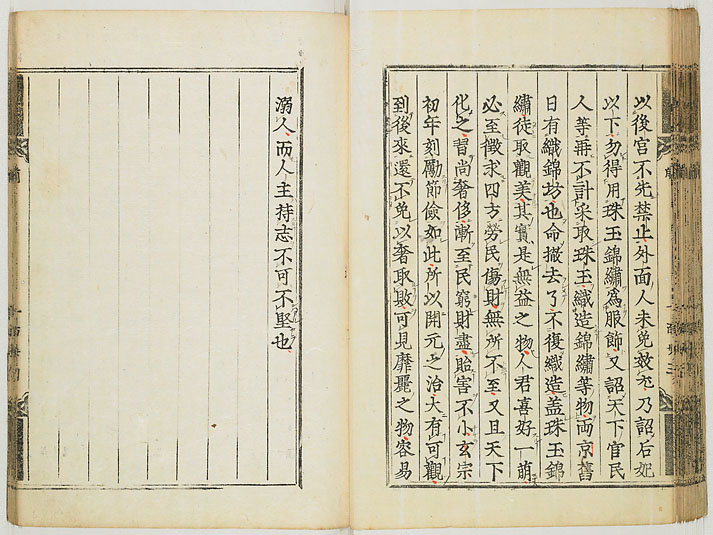 以後宮不先禁止外面人未免效尤乃詔后妃
以下勿得用珠玉錦繡爲服飾又詔天下官民
人等再不許采取珠玉織造錦繡等物兩京舊
日有織錦坊也命撤去了不復織造盖珠玉錦
繡徒取觀美其實是無益之物人君喜好一萌
必至徵求四方勞民傷財無所不至又且天下
化之習尚奢侈漸至民窮財盡貽害不小玄宗
初年刻勵節儉如此所以開元之治大有可觀
到後來還不免以奢取敗可見靡麗之物容易
溺人而人主持志不可不堅也